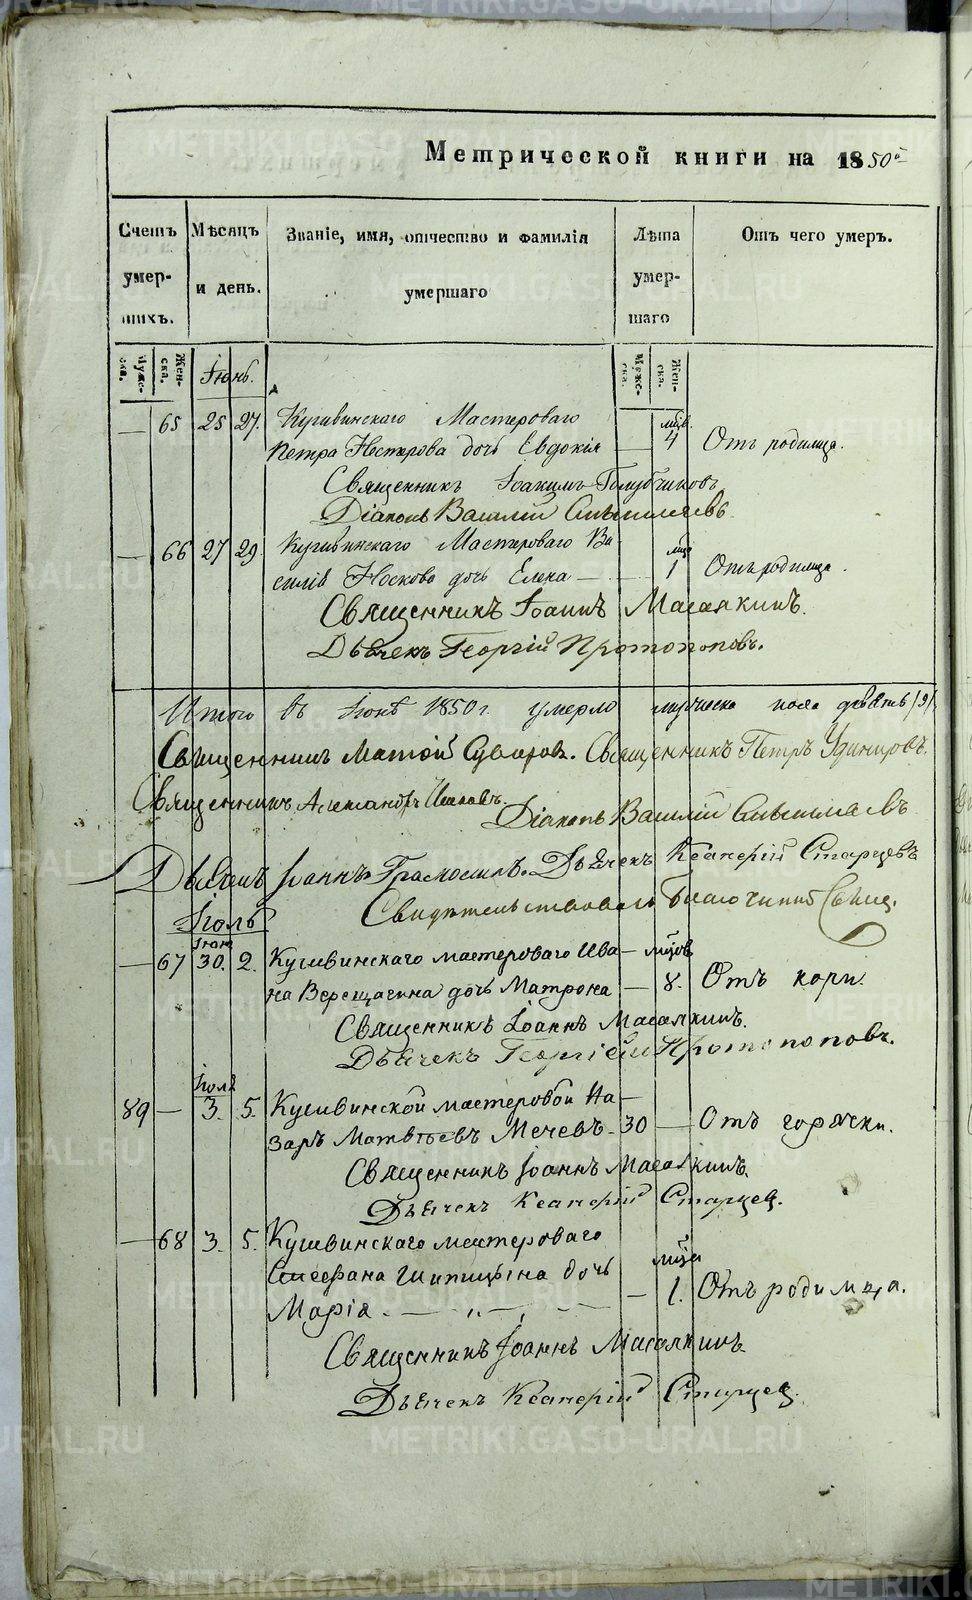 Метрической книги на 1850й
Счетъ умершихъ.
Мѣсяцъ и день.
Званіе, имя, отчество и фамилія умершаго
Лѣта умершаго
Отъ чего умеръ.
Мужеска. Женска. Іюнь. Мужеска. Женска.
— 65 25 27. Кушвинскаго Мастероваго мцв.
Петра Нестерова дочь Евдокія — 4 Отъ родимца.
Священникъ Іоакимъ
Діаконъ Василій
— 66 27 29 Кушвинскаго Мастероваго Ва мцъ
силія Носкова дочь Елена — 1 Отъ родимца.
Священникъ Іоаннъ Масалкинъ.
Дьячекъ Георгій Протопоповъ.
Итого въ Іюнѣ 1850 г. умерло мужеска пола девять /9/
Священникъ Матѳій Суворов. Священникъ Петръ Удинцовъ.
Священникъ Александръ
Діаконъ Василій
Дьячекъ Іоаннъ Дьячекъ Ксанѳрій Старцевъ
Свидѣтельствовалъ Благочинный Свящ.
Іюль
Іюн
— 67 30. 2. Кушвинскаго мастероваго Ива— мцов
на Верещагина дочь Матрона — 8. Отъ кори.
Священникъ Іоаннъ Масалкинъ.
Дьячекъ Георгій Протопоповъ.
Іюля
89 — 3. 5. Кушвинской мастеровой На—
заръ Матвѣевъ Мечевъ 30 — Отъ горячки.
Священникъ Іоаннъ Масалкинъ.
Дьячекъ Ксанѳрій Старцев.
— 68 3. 5. Кушвинскаго мастероваго
Стефана Шипицына дочь мцъ
Марія — 1. Отъ родимца.
Священникъ Іоаннъ Масалкинъ
Дьячекъ Ксанѳрій Старцев.
METRIKI.GASO-URAL.RU